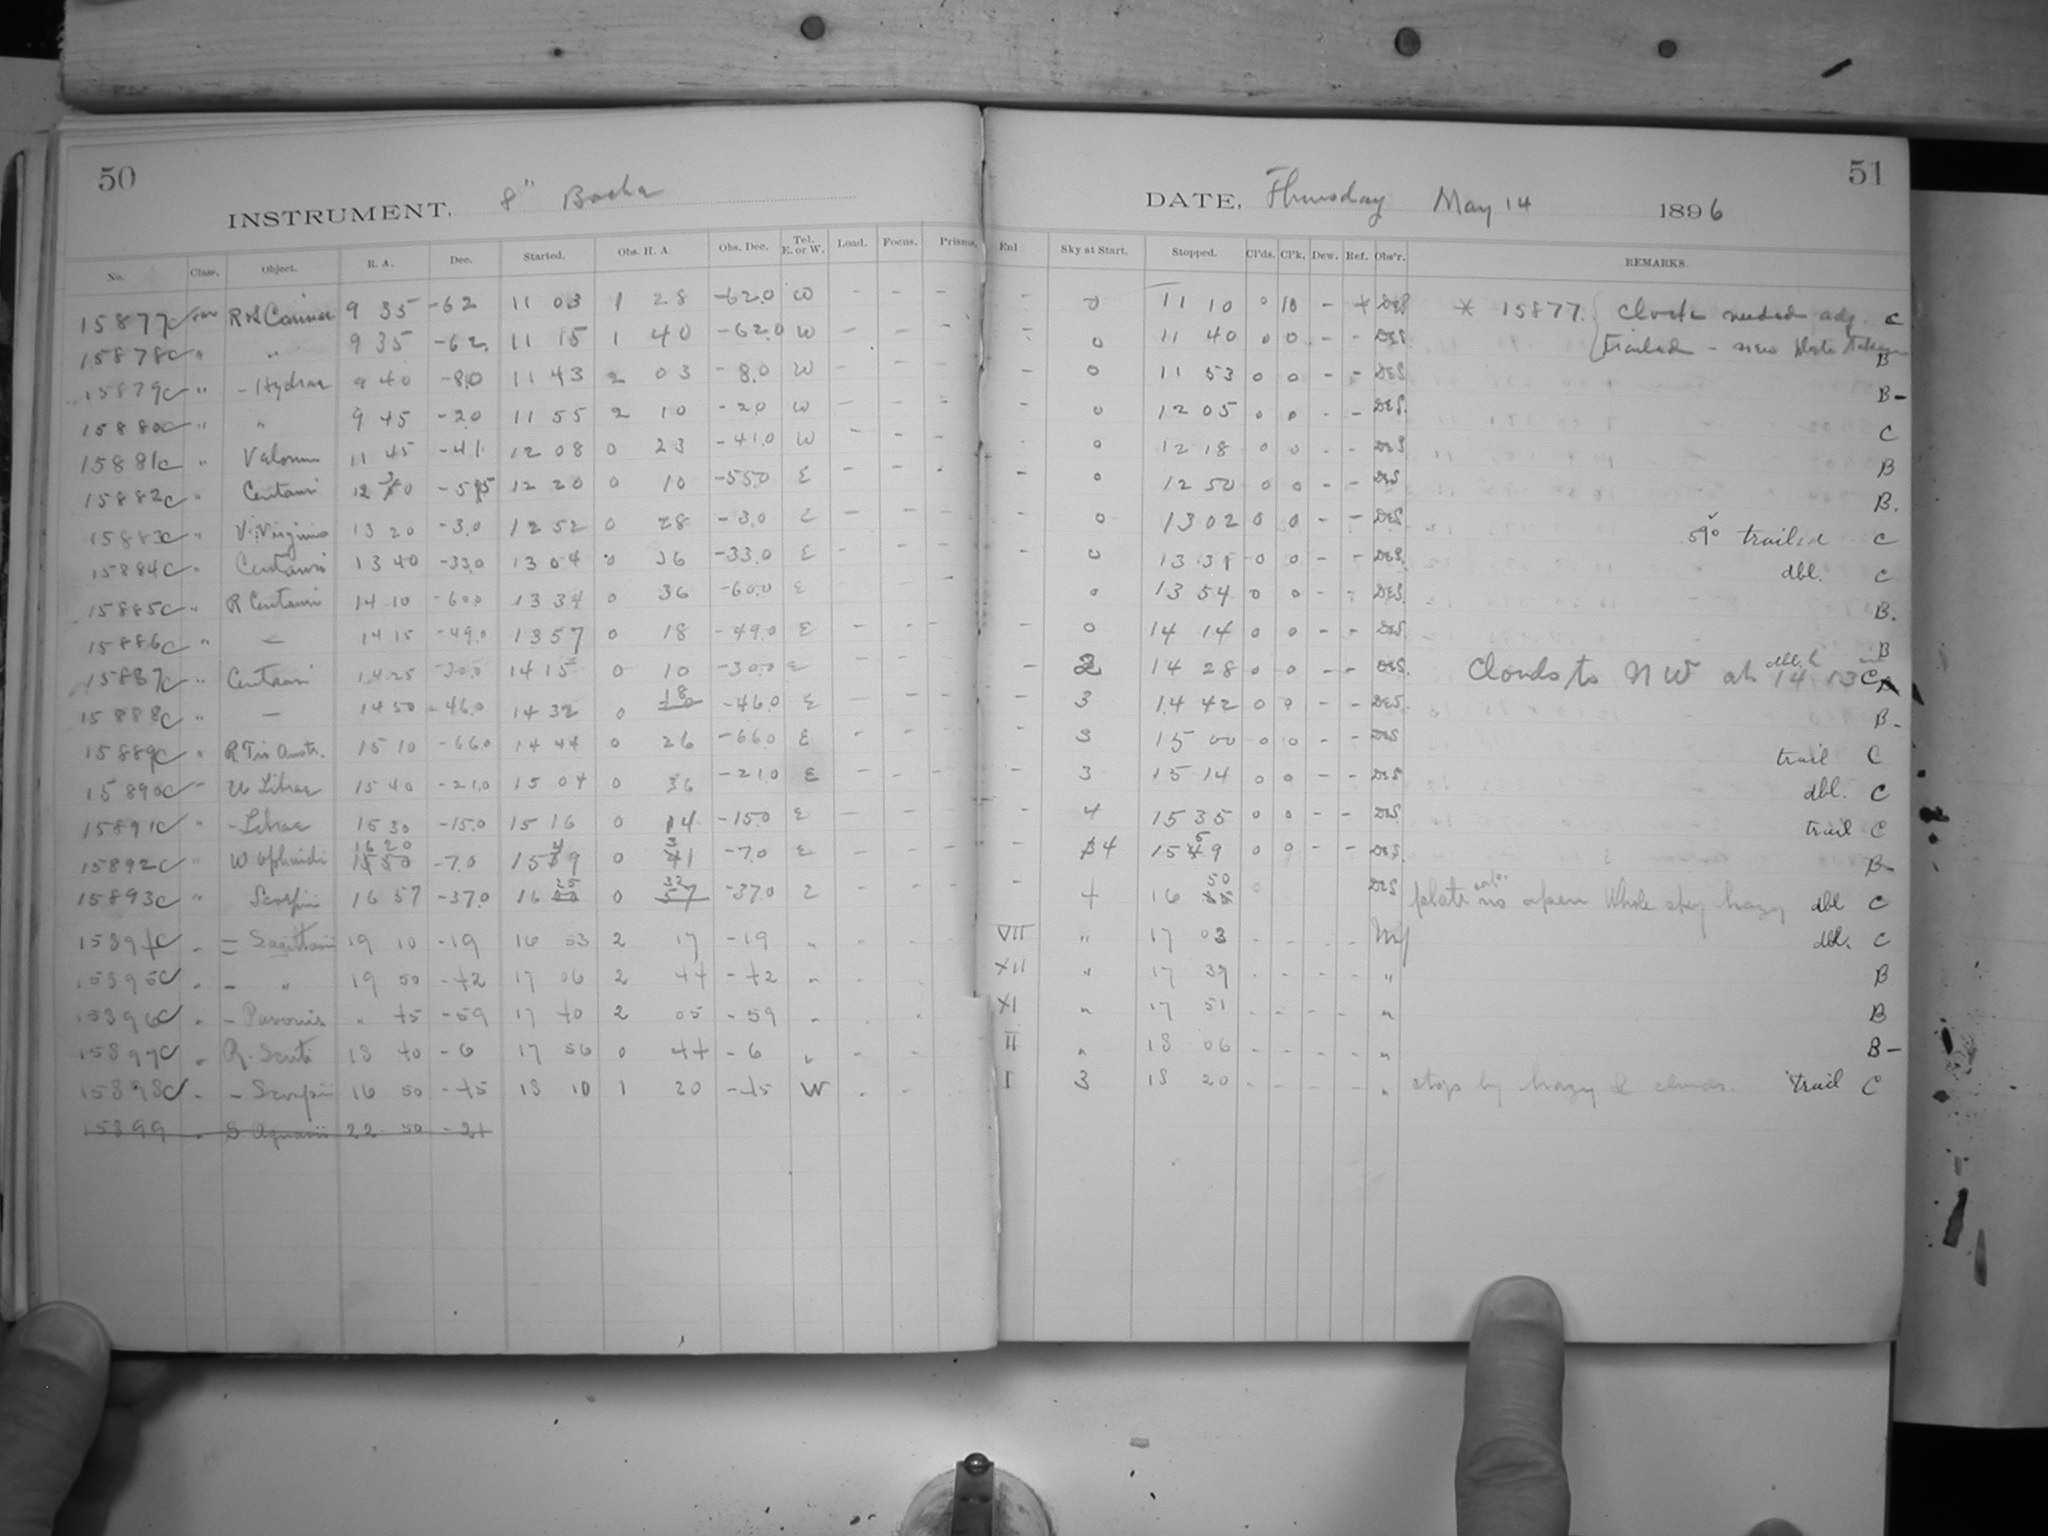 50
INSTRUMENT, 8" Bache
No. Class. Object. R. A. Dec. Started. Obs. H. A. Obs. Dec. Tel. E. or W. Load. Focus. Prisms.
15877c var R & L Carinae 9 35 -62 11 03 1 28 -62.0 W - - -
15878c " " 9 35 -62. 11 15 1 40 -62.0 W - - -
15879c " - Hydrae 9 40 -8.0 11 43 2 03 -8.0 W - - -
15880c " " 9 45 -20 11 55 2 10 -20 W - - -
15881c " Velorum 11 45 -41. 12 08 0 23 -41.0 W - - -
15882c " Centauri 12 30 -55 12 20 0 10 -55.0 E - - -
15883c " V. Virginis 13 20 -3.0 12 52 0 28 -3.0 E - - -
15884c " Centauri 13 40 -33.0 13 04 0 36 -33.0 E - - -
15885c " R Centauri 14 10 -60.0 13 34 0 36 -60.0 E - - -
15886c " - 14 15 -49.0 13 57 0 18 -49.0 E - - -
15887c " Centauri 14 25 -30.0 14 15 0 10 -30.0 E - - -
15888c " - 14 50 -46.0 14 32 0 18 -46.0 E - - -
15889c " R Tri Austr. 15 10 -66.0 14 44 0 26 -66.0 E - - -
15890c " U Librae 15 40 -21.0 15 04 0 36 -21.0 E - - -
15891c " - Librae 15 30 -15.0 15 16 0 14 -15.0 E - - -
15892c " W Ophiuchi 16 20 -7.0 15 49 0 31 -7.0 E - - -
15893c " Scorpii 16 57 -37.0 16 25 0 32 -37.0 E - - -
15894c " - Sagittarii 19 10 -19 16 53 2 17 -19 " - -
15895c " - " 19 50 -42 17 06 2 44 -42 " - -
15896c " - Pavonis " 45 -59 17 40 2 05 -59 " - -
15897c " R. Scuti 18 40 -6 17 56 0 44 -6 " - -
15898c " - Scorpii 16 50 -45 18 10 1 20 -45 W - -
15899 " S Aquarii 22 50 -21
51
DATE, Thursday May 14 1896
Enl Sky at Start. Stopped. Cl'ds. Cl'k. Dew. Ref. Obs'r. REMARKS.
- 0 11 10 0 10 - * DES * 15877. clock needed adj. C
- 0 11 40 0 0 - - DES. trailed - new plate taken B
- 0 11 53 0 0 - - DES B-
- 0 12 05 0 0 - - DES. C
- 0 12 18 0 0 DES B
- 0 12 50 0 0 - - DES B.
- 0 13 02 0 0 - - DES trailed C
- 0 13 31 0 0 - - DES. dbl. C
0 13 54 0 0 - - DES. B.
- 0 14 14 0 0 - - DES. B
- 2 14 28 0 0 - - DES. Clouds to NW at 14h 13m dbl. C
- 3 14 42 0 0 - - DES. B-
- 3 15 00 0 0 - - DES trail C
- 3 15 14 0 0 - - DES dbl. C
- 4 15 35 0 0 - - DES trail C
- 4 15 59 0 0 - - DES. B-
- 4 16 50 0 DES plate no open Whole sky hazy dbl C
VII " 17 03 - - - - dbl. C
XII " 17 39 - - - - " B
XI " 17 51 - - - - " B
II " 18 06 - - - - " B-
I 3 18 20 - - - - " stops by hazy & clouds. trail C